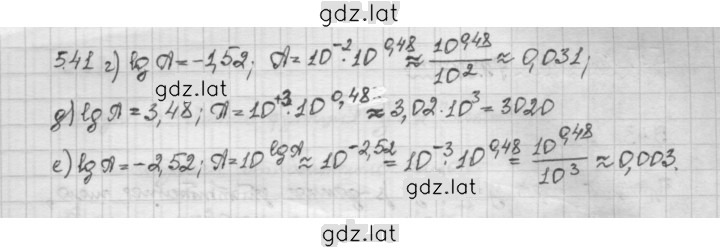 gdz.lat
541 г) lg A = -1,52; A = 10^-2 · 10^0,48 ≈ 10^0,48 / 10^2 ≈ 0,031;
gdz.lat
д) lg A = 3,48; A = 10^+3 · 10^0,48 ≈ 3,02 · 10^3 = 3020
е) lg A = -2,52; A = 10^lg A ≈ 10^-2,52 = 10^-3 · 10^0,48 = 10^0,48 / 10^3 ≈ 0,003.
gdz.lat
gdz.lat